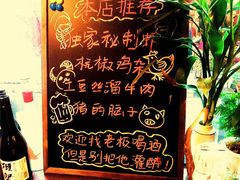 本店推荐
独家秘制虾
杭椒鸡杂
土豆丝溜牛肉
猪的脑子
欢迎找老板喝酒
但是别把他灌醉！